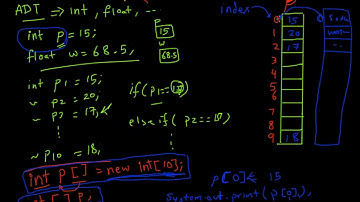 ADT → int, float, ...
int p = 15;
float w = 68.5,
p
15
w
68.5
int p1 = 15;
" p2 = 20;
" p3 = 17,
~ p10 = 18,
if(p1==17)
else if( p2==17)
int p[] = new int[10];
int[] p,
index
0 15
1 20
2 17
3
4
5
6
7
8
9 18
p[0] 15
System.out.print(p[0]),